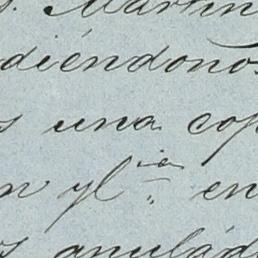 Martin
diéndono
s una cop
n yl^ia en
s anulád